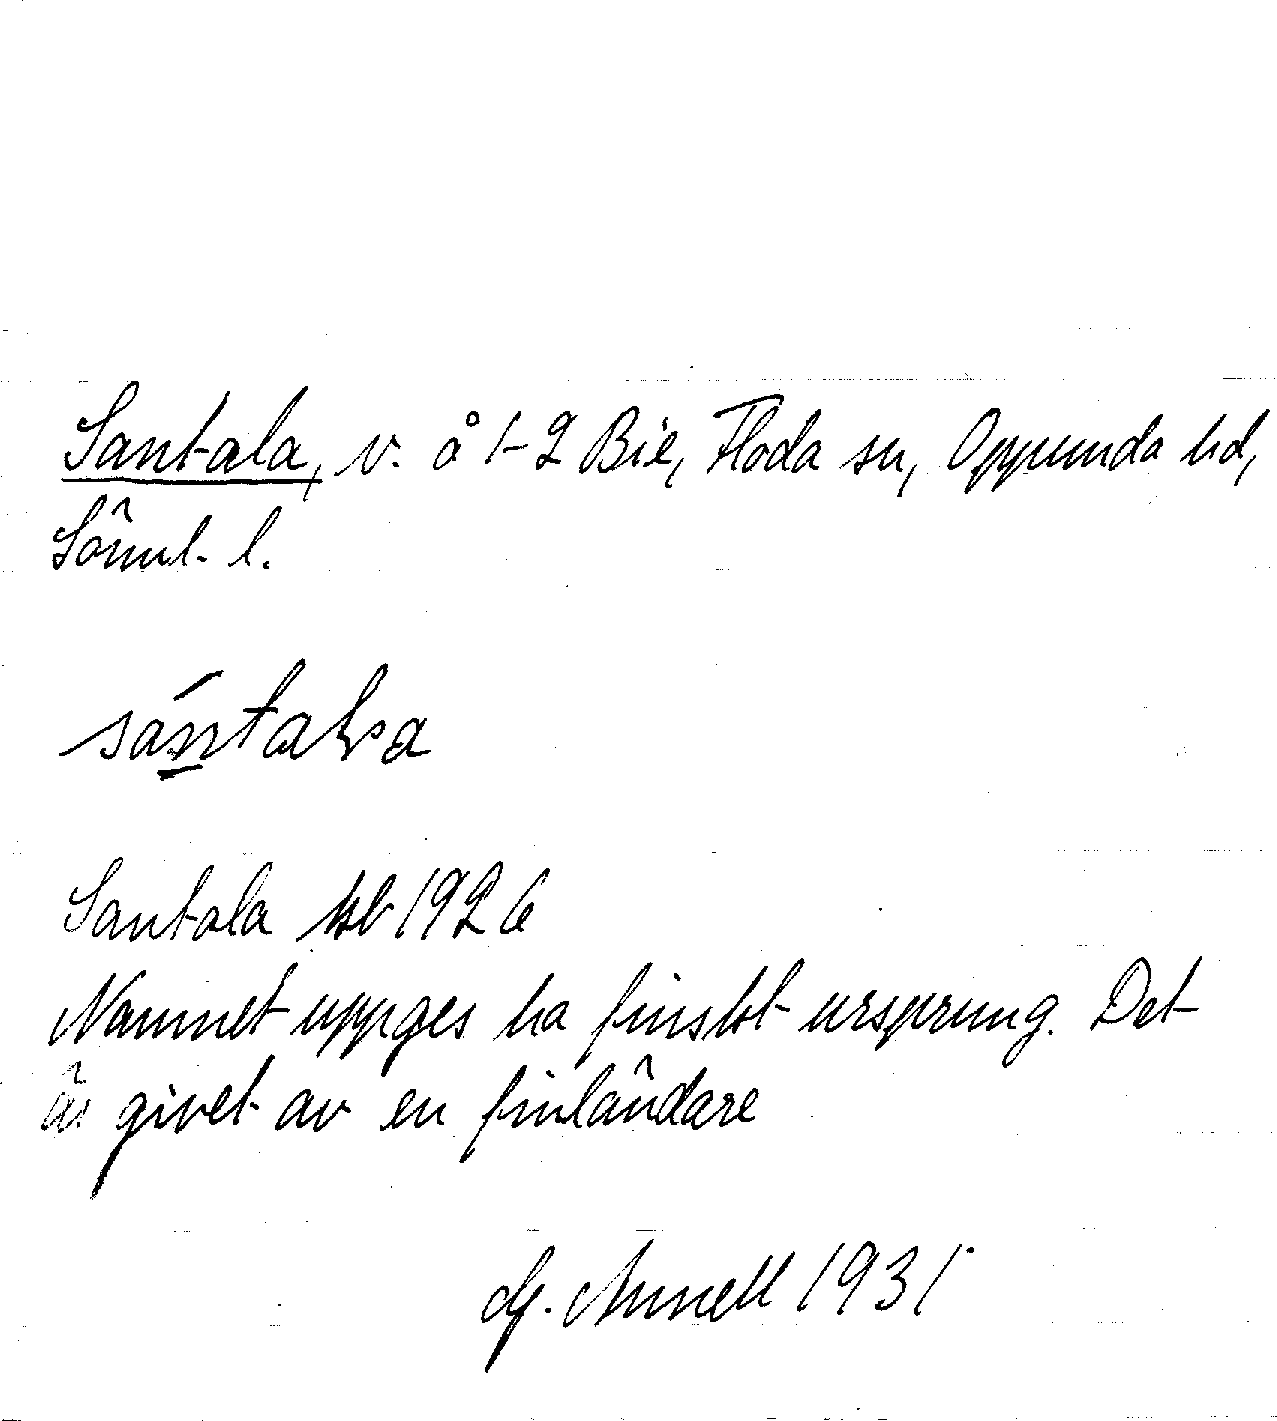 Santala, v. å 1-2 Bie, Floda sn, Oppunda hd,
Söml. l.
sántala
Santala kb 1926
Namnet uppges ha finskt ursprung. Det
är givet av en finländare
G. Annell 1931